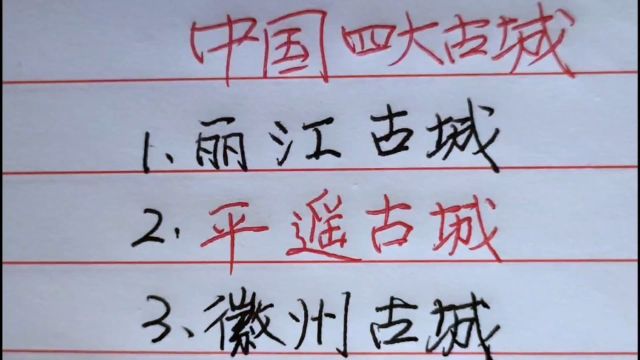 中国四大古城
1、丽江古城
2、平遥古城
3、徽州古城